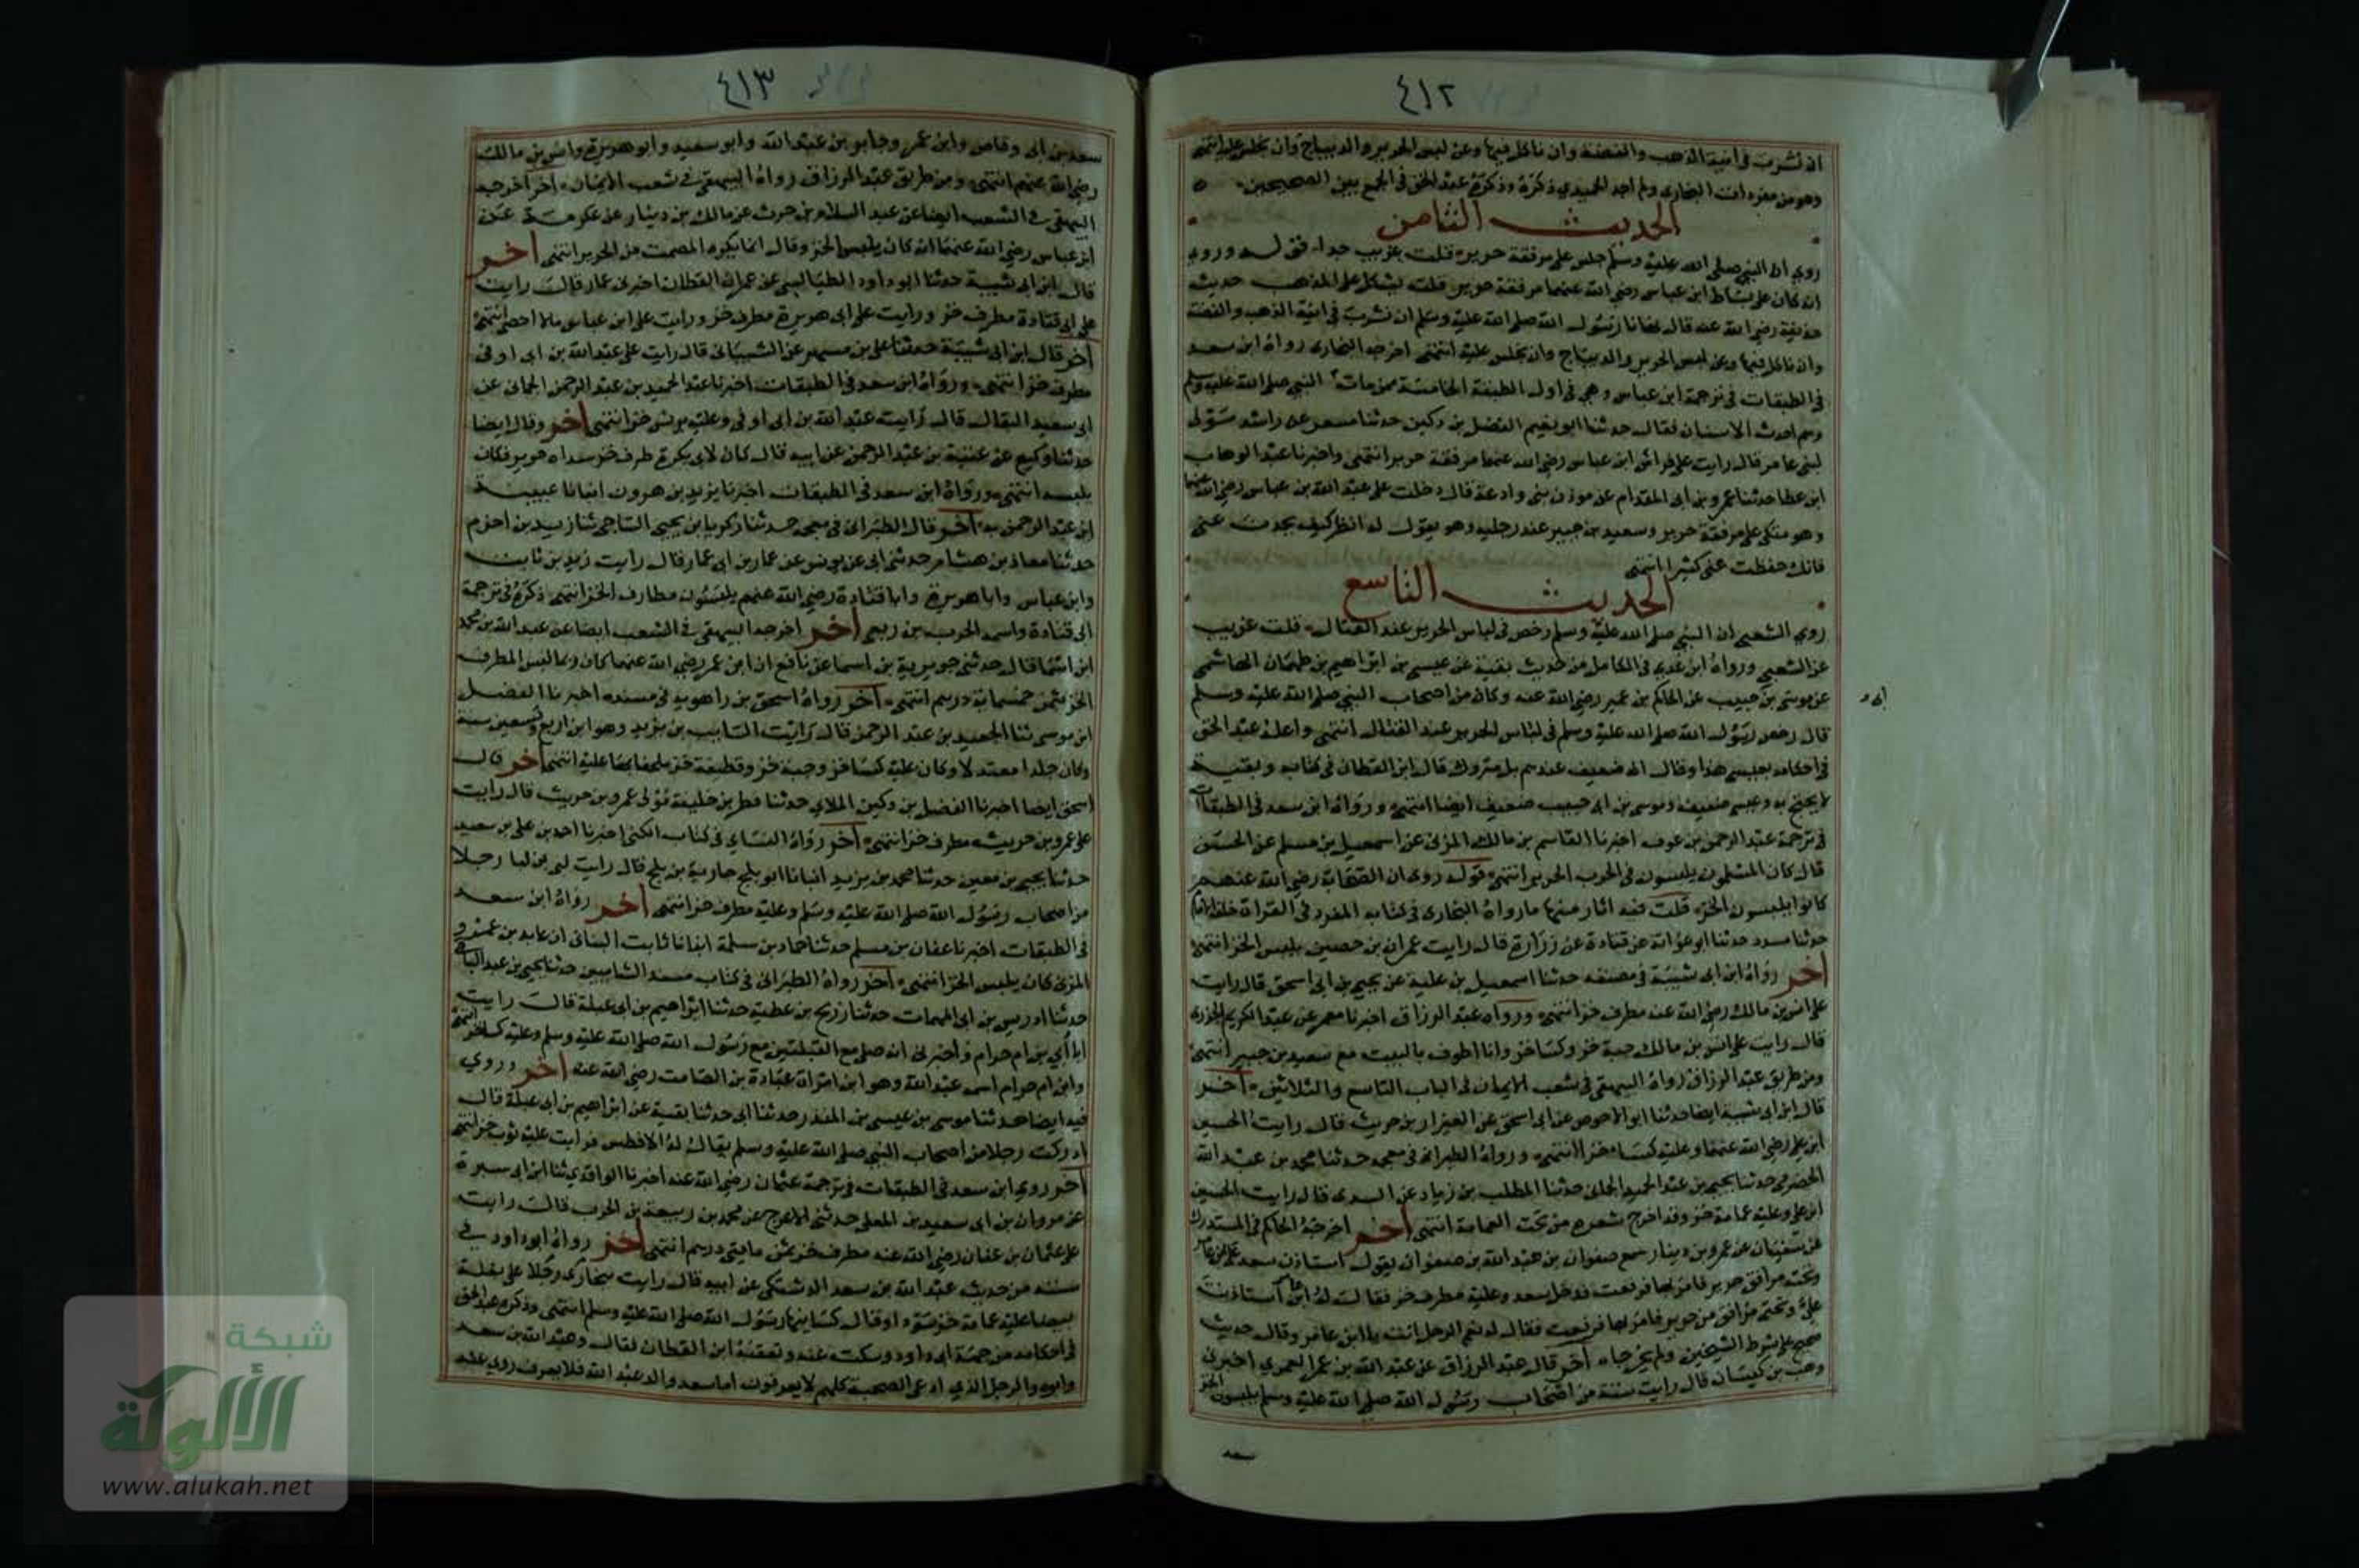 ٤١٢
ان نشرب في انية الذهب والفضة وان ناكل فيها وعن لبس الحرير والديباج وان نجلس عليه انتهى
وهو من مفردات البخاري ولم اجد الحميدي ذكره وذكره عبد الحق في الجمع بين الصحيحين
الحديث الثامن
روي ان النبي صلى الله عليه وسلم جلس على مرفقة حرير قلت غريب جدا قوله وروي
انه كان على بساط ابن عباس رضي الله عنهما مرفقة حرير قلت يشكل على المذهب حديث
حذيفة رضي الله عنه قال نهانا رسول الله صلى الله عليه وسلم ان نشرب في انية الذهب والفضة
وان ناكل فيها وعن لبس الحرير والديباج وان نجلس عليه انتهى اخرجه البخاري رواه ابن سعد
في الطبقات في ترجمة ابن عباس وهي في اول الطبقة الخامسة ممن مات النبي صلى الله عليه وسلم
وهم احدث الاسنان فقال حدثنا ابو نعيم الفضل بن دكين حدثنا مسعر عن راشد مولى
لبني عامر قال رايت على فراش ابن عباس رضي الله عنهما مرفقة حرير انتهى واخبرنا عبد الوهاب
ابن عطا حدثنا عمرو بن ابي المقدام عن موذن بني وادعة قال دخلت على عبد الله بن عباس رضي الله عنهما
وهو متكي على مرفقة حرير وسعيد بن جبير عند رجليه وهو يقول له انظر كيف تحدث عني
فانك حفظت عني كثيرا انتهى
الحديث التاسع
روي الشعبي ان النبي صلى الله عليه وسلم رخص في لباس الحرير عند القتال قلت غريب
عن الشعبي ورواه ابن عدي في الكامل من حديث بقية عن عيسى بن ابراهيم بن طهمان الهاشمي
عن موسى بن حبيب عن الحكم بن عمير رضي الله عنه وكان من اصحاب النبي صلى الله عليه وسلم
قال رخص رسول الله صلى الله عليه وسلم في لباس الحرير عند القتال انتهى واعله عبد الحق
في احكامه بعيسى هذا وقال انه ضعيف عندهم بل متروك قال ابن القطان في كتابه وبقية
لا يحتج به وعيسى ضعيف وموسى بن ابي حبيب ضعيف ايضا انتهى ورواه ابن سعد في الطبقات
في ترجمة عبد الرحمن بن عوف اخبرنا القاسم بن مالك المزني عن اسمعيل بن مسلم عن الحسن
قال كان المسلمون يلبسون في الحرب الحرير انتهى قوله روي ان الصحابة رضي الله عنهم
كانوا يلبسون الخز قلت فيه اثار منها ما رواه البخاري في كتابه المفرد في القراة خلف الامام
حدثنا مسدد حدثنا ابو عوانة عن قتادة عن زرارة قال رايت عمران بن حصين يلبس الخز انتهى
اخر رواه ابن ابي شيبة في مصنفه حدثنا اسمعيل بن علية عن يحيى بن ابي اسحق قال رايت
على انس بن مالك رضي الله عنه مطرف خز انتهى ورواه عبد الرزاق اخبرنا معمر عن عبد الكريم الجزري
قال رايت على انس بن مالك جبة خز وكسا خز وانا اطوف بالبيت مع سعيد بن جبير انتهى
ومن طريق عبد الرزاق رواه البيهقي في شعب الايمان في الباب التاسع والثلاثين اخر
قال ابن ابي شيبة ايضا حدثنا ابو الاحوص عن ابي اسحق عن العيزار بن حريث قال رايت الحسين
ابن علي رضي الله عنهما وعليه كساء خز انتهى ورواه الطبراني في معجمه حدثنا محمد بن عبد الله
الحضرمي حدثنا يحيى بن عبد الحميد الحماني حدثنا المطلب بن زياد عن السدي قال رايت الحسين
ابن علي وعليه عمامة خز وقد اخرج شعره من تحت العمامة انتهى اخر اخرجه الحاكم في المستدرك
عن سفيان عن عمرو بن دينار سمع صفوان بن عبد الله بن صفوان يقول استاذن سعد على ابن عامر
وتحته مرافق حرير فامر بها فرفعت فدخل سعد وعليه مطرف خز فقال له ابن عامر استاذنت
علي وتحتي مرافق من حرير فامرت بها فرفعت فقال له نعم الرجل انت يا ابن عامر وقال حديث
صحيح على شرط الشيخين ولم يخرجاه اخر قال عبد الرزاق عن عبد الله بن عمر العمري اخبرني
وهب بن كيسان قال رايت ستة من اصحاب رسول الله صلى الله عليه وسلم يلبسون الخز
سعد
٤١٣
سعد بن ابي وقاص وابن عمر وجابر بن عبد الله وابو سعيد وابو هريرة وانس بن مالك
رضي الله عنهم انتهى ومن طريق عبد الرزاق رواه البيهقي في شعب الايمان اخر اخرجه
البيهقي في الشعب ايضا عن عبد السلام بن حرب عن مالك بن دينار عن عكرمة عن
ابن عباس رضي الله عنهما انه كان يلبس الخز وقال انما يكره المصمت من الحرير انتهى اخر
قال ابن ابي شيبة حدثنا ابو داود الطيالسي عن عمران القطان اخبرني عمار قال رايت
على ابي قتادة مطرف خز ورايت على ابي هريرة مطرف خز ورايت على ابن عباس ما لا احصي انتهى
اخر قال ابن ابي شيبة حدثنا علي بن مسهر عن الشيباني قال رايت على عبد الله بن ابي اوفى
مطرف خز انتهى ورواه ابن سعد في الطبقات اخبرنا عبد الحميد بن عبد الرحمن الحماني عن
ابي سعيد البقال قال رايت عبد الله بن ابي اوفى وعليه برنس خز انتهى اخر وقال ايضا
حدثنا وكيع عن عيينة بن عبد الرحمن عن ابيه قال كان لابي بكرة طرف خز سداه حرير فكان
يلبسه انتهى ورواه ابن سعد في الطبقات اخبرنا يزيد بن هرون انبانا عيينة
ابن عبد الرحمن به اخر قال الطبراني في معجمه حدثنا زكريا بن يحيى الساجي ثنا زيد بن اخزم
حدثنا معاذ بن هشام حدثني ابي عن يونس عن عمار بن ابي عمار قال رايت زيد بن ثابت
وابن عباس وابا هريرة وابا قتادة رضي الله عنهم يلبسون مطارف الخز انتهى ذكره في ترجمة
ابي قتادة واسمه الحرب بن ربعي اخر اخرجه البيهقي في الشعب ايضا عن عبد الله بن محمد
ابن اسما قال حدثني جويرية بن اسما عن نافع ان ابن عمر رضي الله عنهما كان ربما لبس المطرف
الخز ثمن خمسماية درهم انتهى اخر رواه اسحق بن راهويه في مسنده اخبرنا الفضل
ابن موسى ثنا الجعيد بن عبد الرحمن قال رايت السايب بن يزيد وهو ابن اربع وتسعين سنة
وكان جلدا معتدلا وكان عليه كسا خز وجبة خز وقطيفة خز ملتحفا بها عليه انتهى اخر قال
اسحق ايضا اخبرنا الفضل بن دكين الملاي حدثنا فطر بن خليفة مولى عمرو بن حريث قال رايت
على عمرو بن حريث مطرف خز انتهى اخر رواه النساي في كتاب الكنى اخبرنا احمد بن علي بن سعيد
حدثنا يحيى بن معين حدثنا محمد بن يزيد انبانا ابو بلج جارية بن بلج قال رايت لبي بن لبا رجلا
من اصحاب رسول الله صلى الله عليه وسلم وعليه مطرف خز انتهى اخر رواه ابن سعد
في الطبقات اخبرنا عفان بن مسلم حدثنا حماد بن سلمة انبانا ثابت البناني ان عايد بن عمرو
المزني كان يلبس الخز انتهى اخر رواه الطبراني في كتاب مسند الشاميين حدثنا يحيى بن عبد الباقي
حدثنا ادريس بن ابي المهمات حدثنا زريح بن عطية حدثنا ابراهيم بن ابي عبلة قال رايت
ابا ابي بن ام حرام واخبرني انه صلى مع القبلتين مع رسول الله صلى الله عليه وسلم وعليه كسا خز انتهى
وابن ام حرام اسمه عبد الله وهو ابن امراة عبادة بن الصامت رضي الله عنه اخر وروي
فيه ايضا حدثنا موسى بن عيسى بن المنذر حدثنا ابي حدثنا بقية عن ابراهيم بن ابي عبلة قال
ادركت رجلا من اصحاب النبي صلى الله عليه وسلم يقال له الافطس فرايت عليه ثوب خز انتهى
اخر روي ابن سعد في الطبقات في ترجمة عثمان رضي الله عنه اخبرنا الواقدي ثنا ابن ابي سبرة
عن مروان بن ابي سعيد بن المعلى حدثني الاعرج عن محمد بن ربيعة بن الحرب قال رايت
على عثمان بن عفان رضي الله عنه مطرف خز ثمن مايتي درهم انتهى اخر رواه ابو داود في
سننه من حديث عبد الله بن سعد الدشتكي عن ابيه قال رايت ببخارى رجلا على بغلة
بيضا عليه عمامة خز سودا وقال كسانيها رسول الله صلى الله عليه وسلم انتهى وذكره عبد الحق
في احكامه من جهة ابي داود وسكت عنه وتعقبه ابن القطان فقال وعبد الله بن سعد
وابوه والرجل الذي ادعى الصحبة كلهم لا يعرفون اما سعد والد عبد الله فلا يعرف روي عنه
شبكة
الألوكة
www.alukah.net